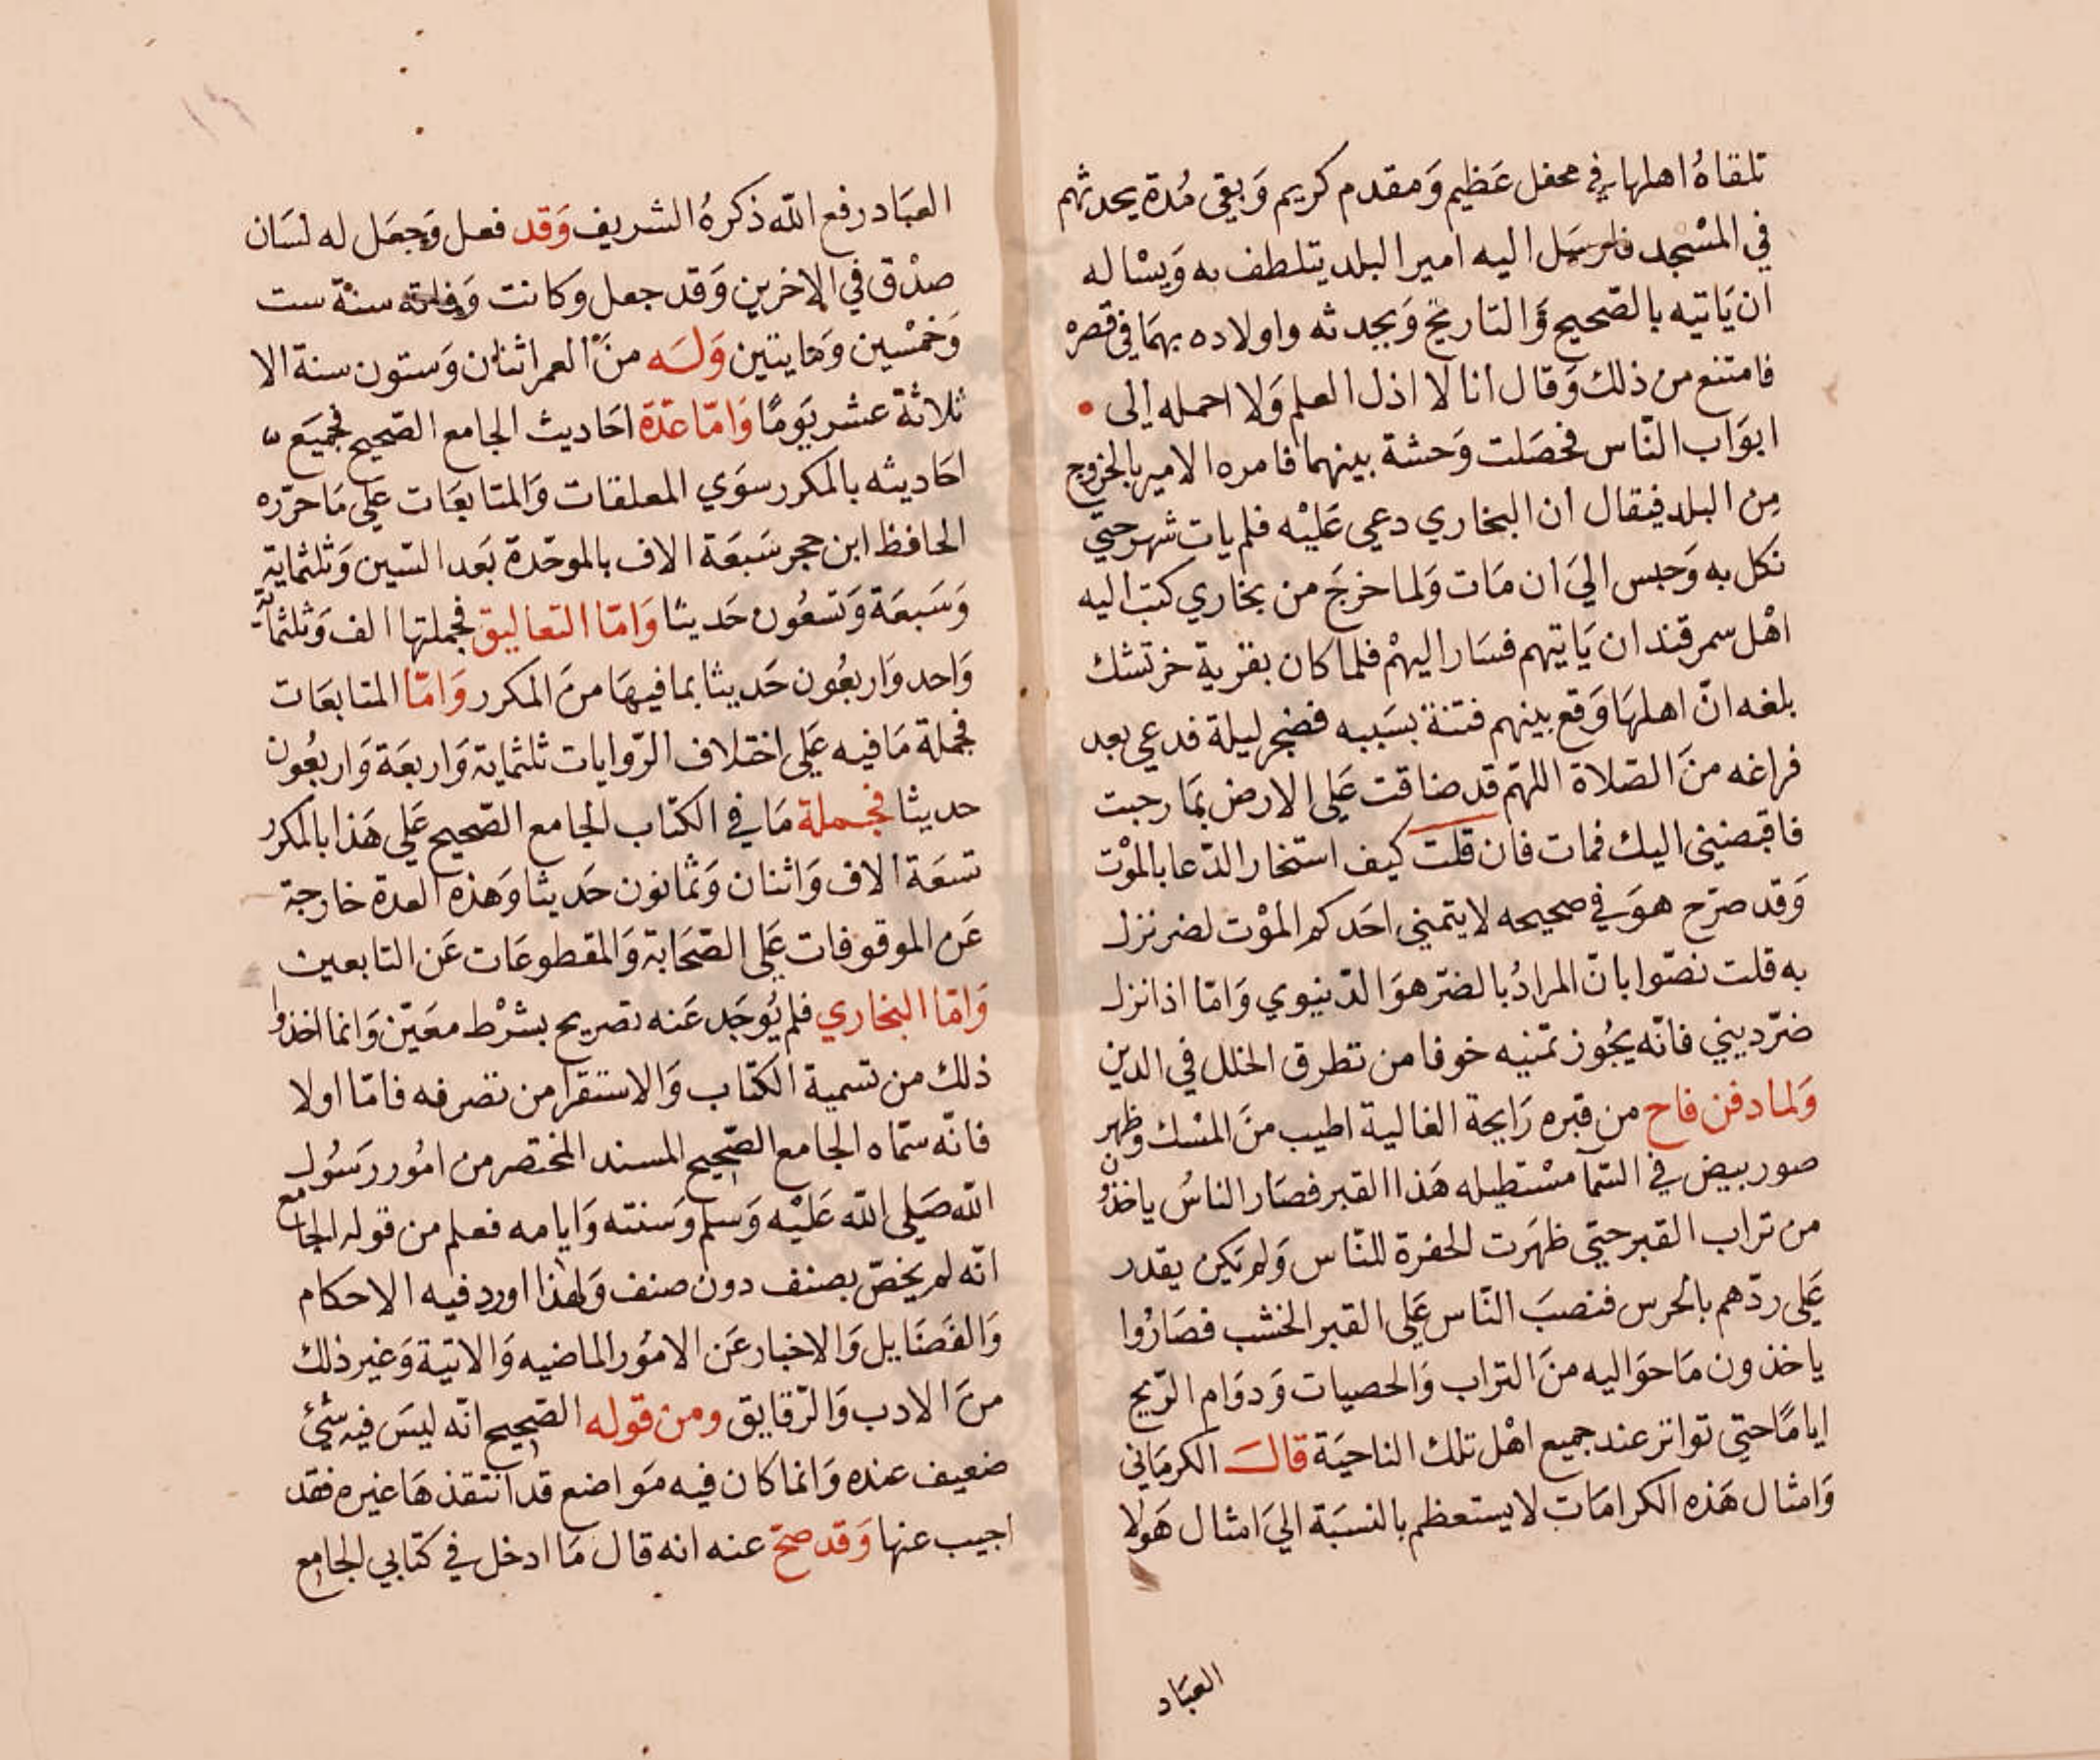 تلقاهُ اهلها في محفل عَظيم وَمقدم كريم وَبقي مُدة يحدثهم
في المسْجد فارسَل اليه امير البلد يتلطف به وَيسْاله
ان يَاتيه بالصّحيح وَالتاريخ وَيحدثه واولاده بهمَا في قصرهْ
فامتنع من ذلك وَقال انا لا اذل العلم وَلا احمله الى
ابوَاب النّاس فحصَلت وَحشة بينهما فامره الامير بالخروج
مِن البلد فيقال ان البخاري دعي عَليْه فلم يات شهر حتّي
نكل به وَحبس اليَ ان مَات وَلما خرجَ من بخاري كتب اليه
اهْل سمرقند ان يَاتيهم فسَار اليهمْ فلما كان بقرية خرتتنك
بلغه انّ اهلهَا وَقع بينهم فتنة بسَببه فضجر ليلة فدعي بعد
فراغه منَ الصّلاة اللهمّ قد ضاقت عَلي الارض بمَا رحبت
فاقبضيني اليك فمات فان قلت كيف استخار الدّعا بالموْت
وَقد صرّح هوَ في صحيحه لا يتمني احَدكم الموْت لضر نزل
به قلت نصّوا بانّ المرادُ بالضرّ هوَ الدّنيوي وَامّا اذا نزل
ضرّ ديني فانّه يجُوز تمّنيه خوفا من تطرق الخلل في الدين
وَلما دفن فاح من قبره رَايحة الغالية اطيب منَ المسْك وظهر
صور بيض في السّمآ مسْتطيله هَذا القبر فصَار الناسُ ياخذون
من تراب القبر حتي ظهَرت الحفرة للنّاس وَلم يَكن يقدر
عَلي ردّهم بالحرس فنصبَ النّاس عَلي القبر الخشب فصَارُوا
ياخذون مَا حوَاليه منَ التراب وَالحصيات وَدوَام الرّيح
ايامًا حتي تواتر عند جميع اهْل تلك الناحيَة قالَ الكرمَاني
وَامثال هَذه الكرامَات لا يستعظم بالنسبَة اليَ امثال هَولا
العبَاد
العبَاد رفع الله ذكرهُ الشريف وَقد فعل وَجعَل له لسَان
صدْق في الاخرين وَقد جعل وكانت وَفاته سنة ست
وَخمْسين وَمايتين وَلَه منَ العمر اثنان وَستون سنة الا
ثلاثة عشر يَومًا وَامّا عدّة احَاديث الجامع الصّحيح فجميَع
احَاديثه بالمكرر سوَي المعلقات وَالمتابعَات عَلي مَا حرّره
الحافظ ابن حجر سَبعَة الاف بالموحّدة بَعد السّين وَثلثماية
وَسَبعَة وَتسعُون حَديثا وَامّا التعاليق فجملتها الف وَثلثماية
وَاحد وَاربعُون حَديثا بما فيهَا منَ المكرر وَامّا المتابعَات
فجملة مَا فيه عَلي اختلاف الرّوايات ثلثماية وَاربعَة وَاربعُون
حديثا فجملة مَا في الكتاب الجامع الصّحيح عَلي هَذا بالمكرر
تسعَة الاف وَاثنان وَثمانون حَديثا وَهذه العدة خارجة
عَن الموقوفات عَلي الصّحَابة وَالمقطوعَات عَن التابعين
وَامّا البخاري فلم يُوجَد عَنه تصريح بشرْط معَيّن وَانما اخذوا
ذلك من تسمية الكتاب وَالاستقرا من تصرفه فامّا اولا
فانّه سمّاه الجامع الصّحيح المسند المختصر من امُور رَسُول
الله صَلي الله عَليْه وَسلم وَسنته وَايامه فعلم من قوله الجامع
انّه لم يخصّ بصنف دون صنف وَلهذا اورد فيه الاحكام
وَالفضَايل وَالاخبار عَن الامُور الماضيه وَالاتية وَغير ذلك
منَ الادب وَالرّقايق ومن قوله الصّحيح انّه ليسَ فيه شيْئ
ضعيف عنده وَانما كان فيه مَواضع قد انتقذهَا غيره فقد
اجيب عنها وَقد صحّ عنه انه قال مَا ادخل في كتابي الجامع